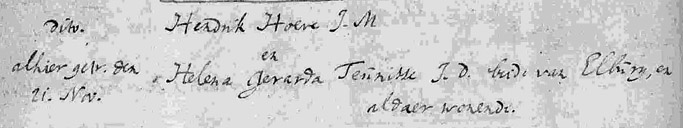 dito. Hendrik Hoeve J. M
en
alhier getr. den Helena Gerarda Teunisse J. D. beide van Elburg, en
21. Nov. aldaer wonende.